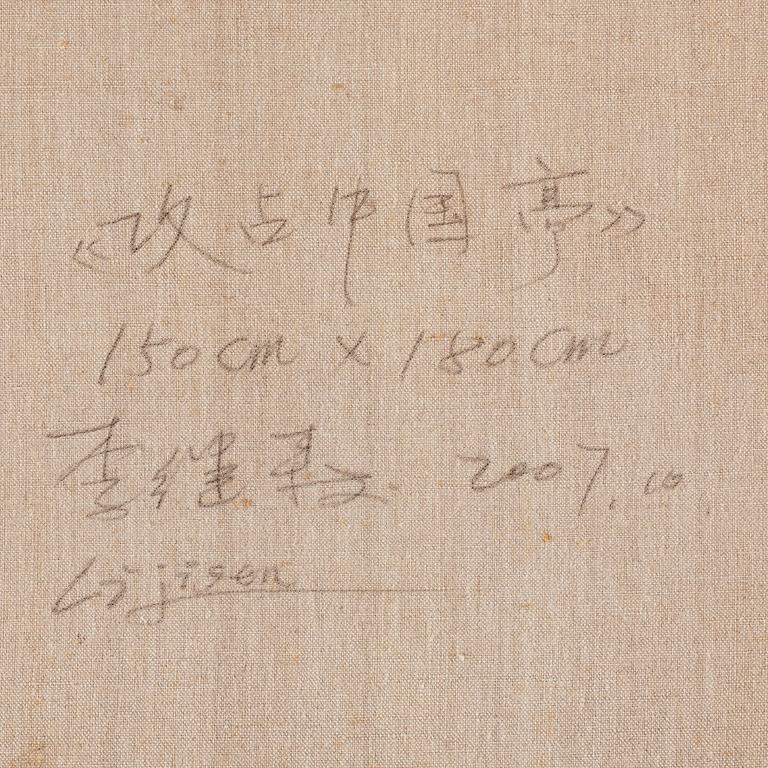 《攻占中国亭》
150cm × 180cm
李继森 2007.10
Li jisen